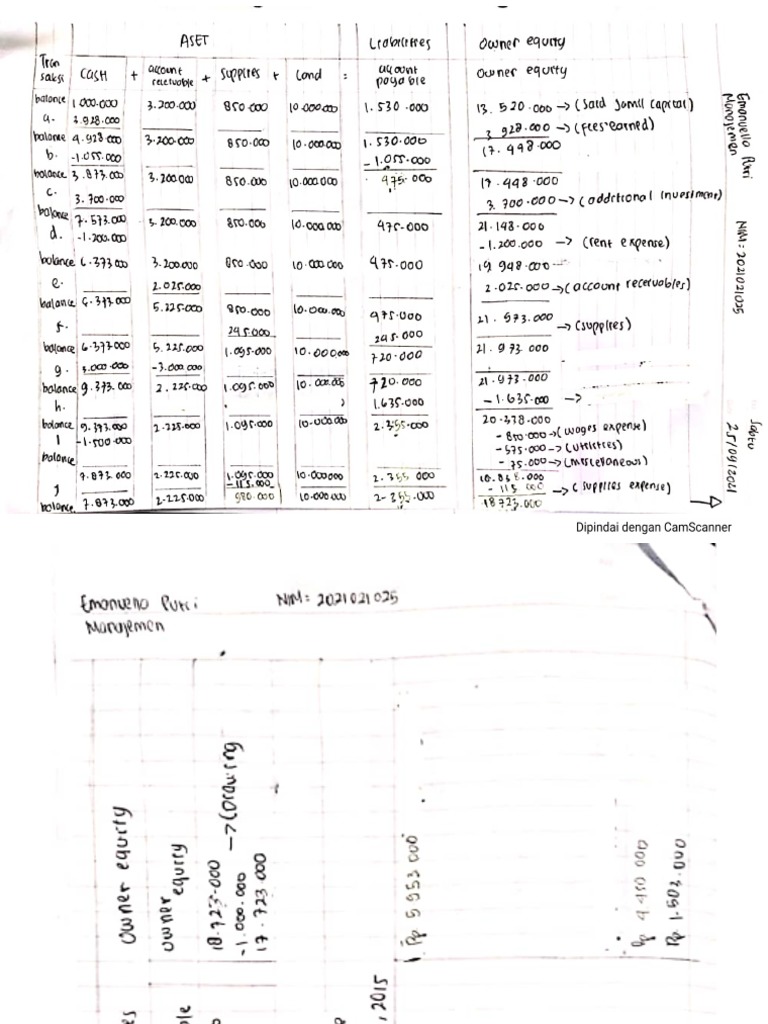 ASET Liabilities Owner equity
Tran saksi Cash + account receivable + Supplies + Land = account payable Owner equity
balance 1.000.000 3.200.000 850.000 10.000.000 1.530.000 13.520.000 → (Said Jamil Capital)
a. 3.928.000 3.928.000 → (fees earned)
balance 4.928.000 3.200.000 850.000 10.000.000 1.530.000 17.448.000
b. -1.055.000 -1.055.000
balance 3.873.000 3.200.000 850.000 10.000.000 475.000 17.448.000
c. 3.700.000 3.700.000 → (additional investment)
balance 7.573.000 3.200.000 850.000 10.000.000 475.000 21.148.000
d. -1.200.000 -1.200.000 → (rent expense)
balance 6.373.000 3.200.000 850.000 10.000.000 475.000 19.948.000
e. 2.025.000 2.025.000 → (account receivables)
balance 6.373.000 5.225.000 850.000 10.000.000 475.000 21.973.000
f. 245.000 245.000 → (supplies)
balance 6.373.000 5.225.000 1.095.000 10.000.000 720.000 21.973.000
g. 3.000.000 -3.000.000
balance 9.373.000 2.225.000 1.095.000 10.000.000 720.000 21.973.000
h. 1.635.000 -1.635.000 →
balance 9.373.000 2.225.000 1.095.000 10.000.000 2.355.000 20.338.000
I -1.500.000 -850.000 → (wages expense)
-575.000 → (utilities)
balance -75.000 → (miscellaneous)
7.873.000 2.225.000 1.095.000 10.000.000 2.355.000 18.838.000
j -115.000 -115.000 → (supplies expense)
balance 7.873.000 2.225.000 980.000 10.000.000 2.355.000 18.723.000
Emanuello Putri NIM: 2021021025 Sabtu
Manajemen 25/09/2021
Dipindai dengan CamScanner
Emanuello Putri NIM: 2021021025
Manajemen
Owner equity
Owner equity
18.723.000
-1.000.000 → (Drawing
17.723.000
, 2015
Rp 5 953 000
Rp 4.450 000
Rp 1.503.000